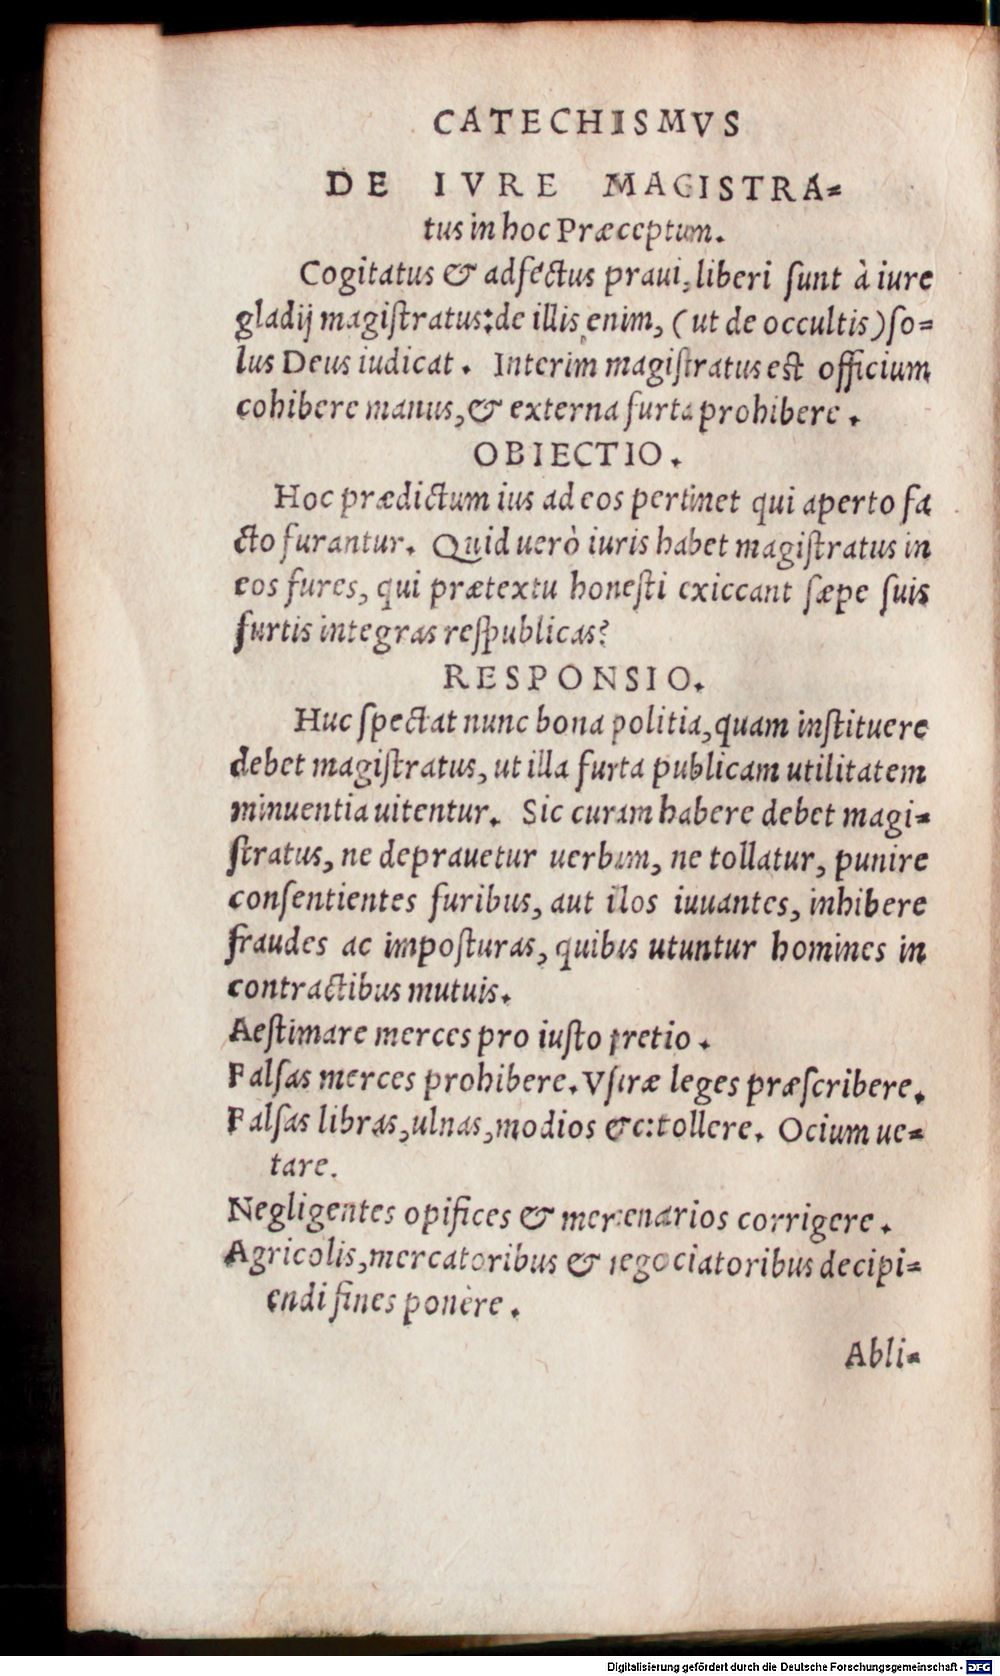 CATECHISMVS
DE IVRE MAGISTRA=
tus in hoc Præceptum.
Cogitatus & adfectus praui, liberi ſunt à iure
gladij magiſtratus: de illis enim, (ut de occultis) ſo=
lus Deus iudicat. Interim magiſtratus eſt officium
cohibere manus, & externa furta prohibere.
OBIECTIO.
Hoc prædictum ius ad eos pertinet qui aperto fa
cto furantur. Quid uerò iuris habet magiſtratus in
eos fures, qui prætextu honeſti exiccant ſæpe ſuis
furtis integras reſpublicas?
RESPONSIO.
Huc ſpectat nunc bona politia, quam inſtituere
debet magiſtratus, ut illa furta publicam utilitatem
minuentia uitentur. Sic curam habere debet magi=
ſtratus, ne deprauetur uerbum, ne tollatur, punire
conſentientes furibus, aut illos iuuantes, inhibere
fraudes ac impoſturas, quibus utuntur homines in
contractibus mutuis.
Aeſtimare merces pro iuſto pretio.
Falſas merces prohibere. Vſuræ leges præſcribere.
Falſas libras, ulnas, modios &c: tollere. Ocium ue=
tare.
Negligentes opifices & mercenarios corrigere.
Agricolis, mercatoribus & negociatoribus decipi=
endi fines ponere.
Abli=
Digitalisierung gefördert durch die Deutsche Forschungsgemeinschaft - DFG